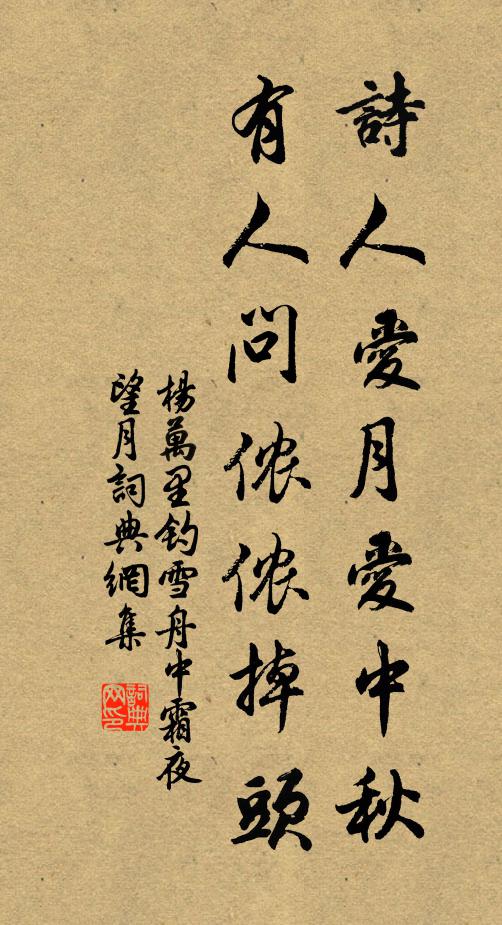 詩人愛月愛中秋
有人問侬侬掉頭
楊萬里釣雪舟中霜夜
望月詞典網集
詞典网印